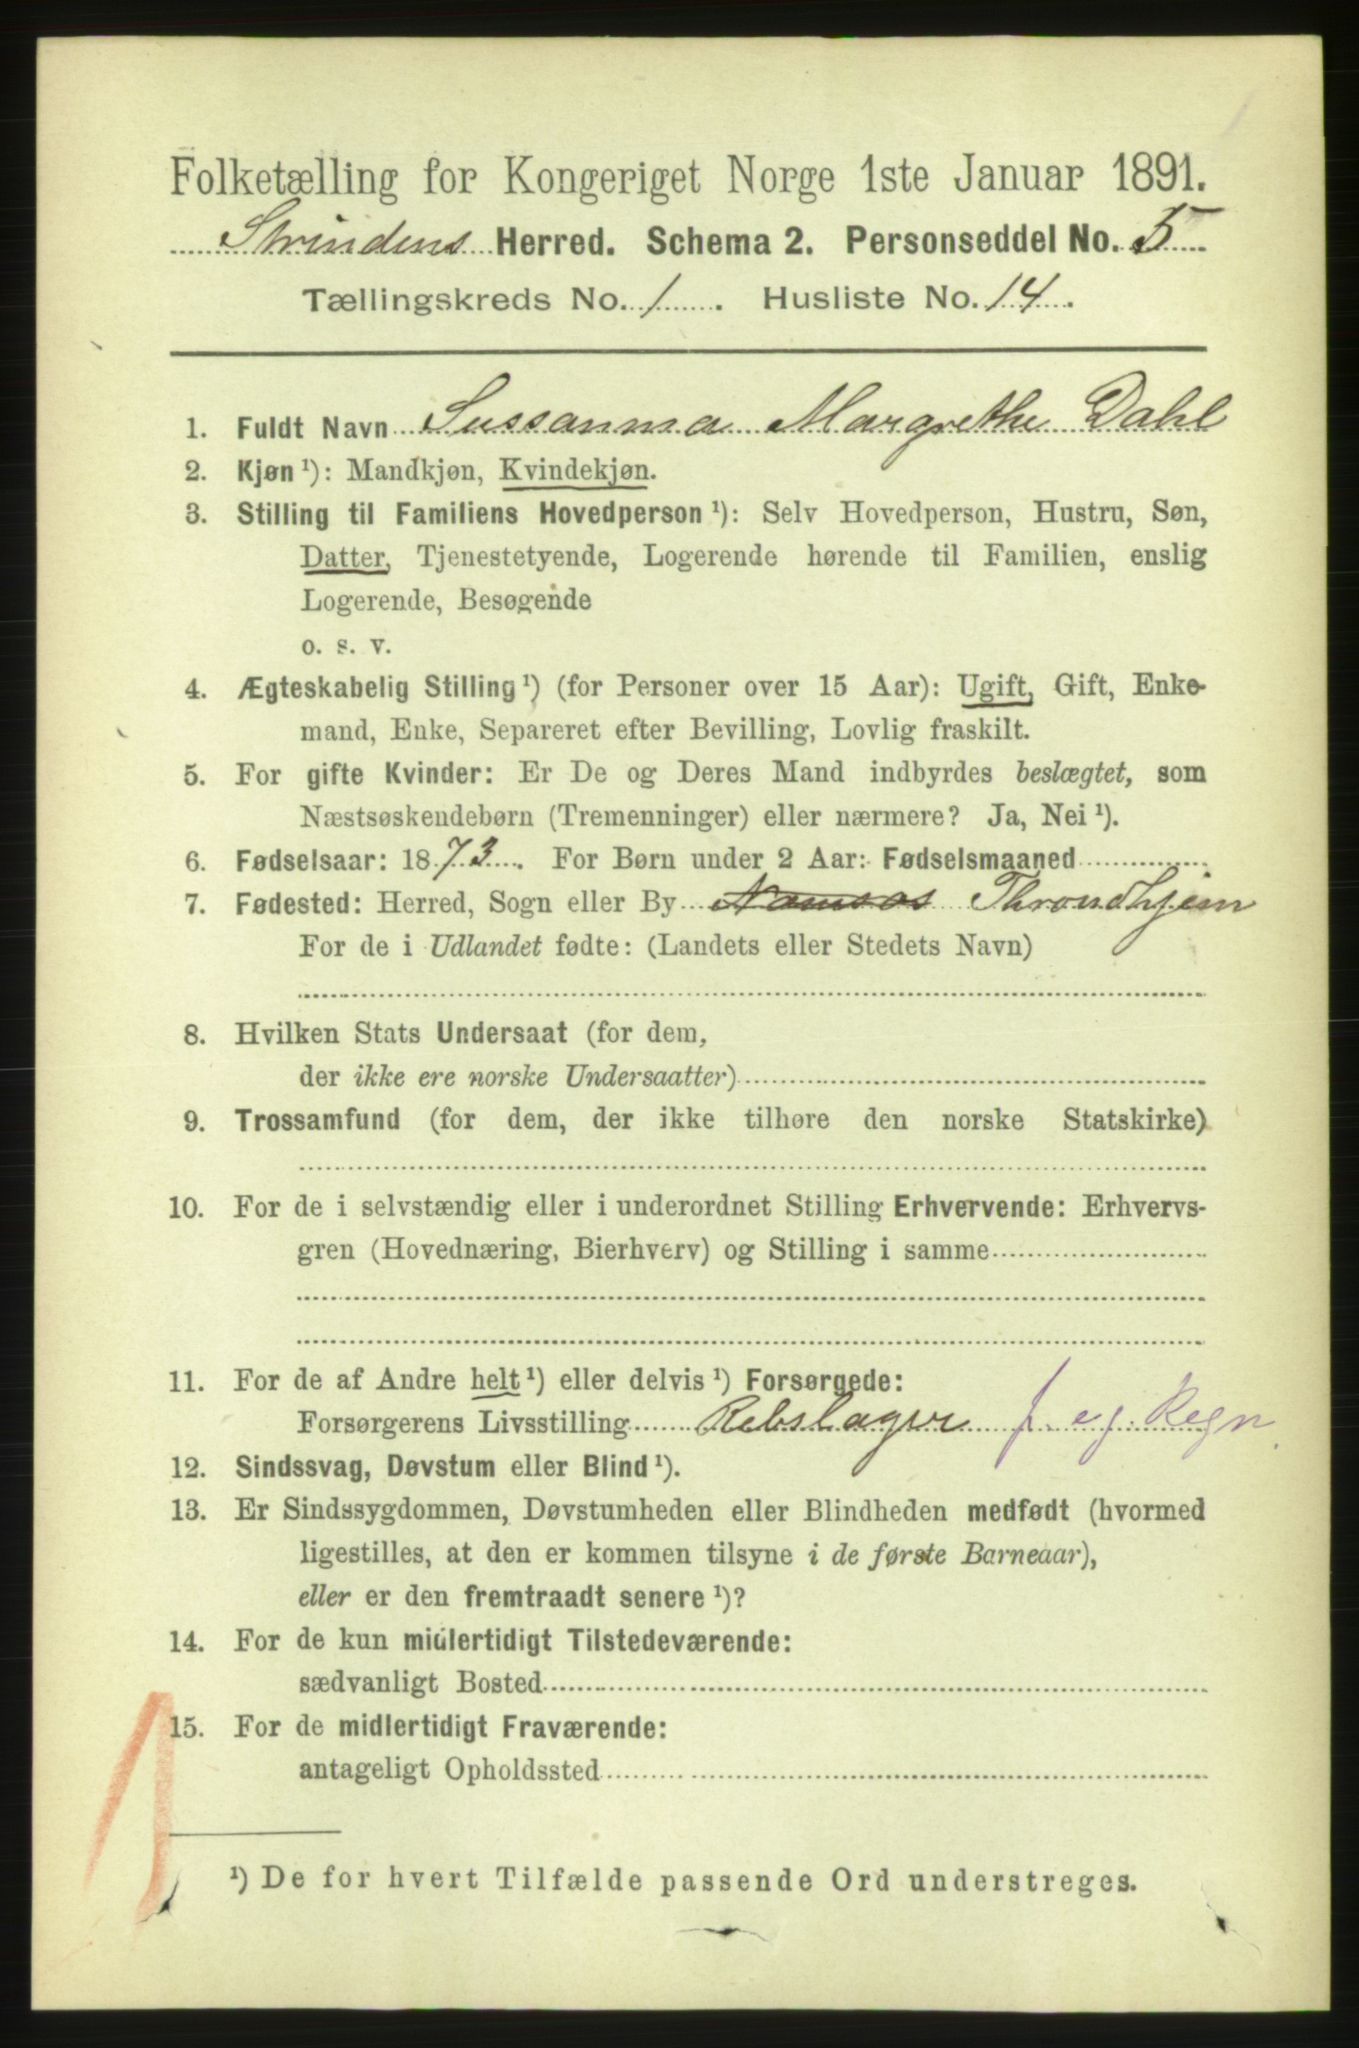 Folketælling for Kongeriget Norge 1ste Januar 1891.
Strindens Herred. Schema 2. Personseddel No. 5
Tællingskreds No. 1. Husliste No. 14.
1. Fuldt Navn Sussanna Margrethe Dahl
2. Kjøn ¹): Mandkjøn, Kvindekjøn.
3. Stilling til Familiens Hovedperson ¹): Selv Hovedperson, Hustru, Søn,
Datter, Tjenestetyende, Logerende hørende til Familien, enslig
Logerende, Besøgende
o. s. v.
4. Ægteskabelig Stilling ¹) (for Personer over 15 Aar): Ugift, Gift, Enke-
mand, Enke, Separeret efter Bevilling, Lovlig fraskilt.
5. For gifte Kvinder: Er De og Deres Mand indbyrdes beslægtet, som
Næstsøskendebørn (Tremenninger) eller nærmere? Ja, Nei ¹).
6. Fødselsaar: 1873. For Børn under 2 Aar: Fødselsmaaned
7. Fødested: Herred, Sogn eller By Namsos Throndhjem
For de i Udlandet fødte: (Landets eller Stedets Navn)
8. Hvilken Stats Undersaat (for dem,
der ikke ere norske Undersaatter)
9. Trossamfund (for dem, der ikke tilhøre den norske Statskirke)
10. For de i selvstændig eller i underordnet Stilling Erhvervende: Erhvervs-
gren (Hovednæring, Bierhverv) og Stilling i samme
11. For de af Andre helt ¹) eller delvis ¹) Forsørgede:
Forsørgerens Livsstilling Rebslager f. eg. Regn.
12. Sindssvag, Døvstum eller Blind ¹).
13. Er Sindssygdommen, Døvstumheden eller Blindheden medfødt (hvormed
ligestilles, at den er kommen tilsyne i de første Barneaar),
eller er den fremtraadt senere ¹)?
14. For de kun midlertidigt Tilstedeværende:
sædvanligt Bosted
15. For de midlertidigt Fraværende:
antageligt Opholdssted
1
¹) De for hvert Tilfælde passende Ord understreges.